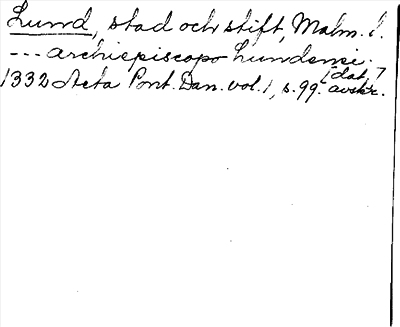 Lund, stad och stift, Malm. l.
--- archiepiscopo Lundensi.
1332 Acta Pont. Dan. vol. 1, s. 99. (dat.) avskr.